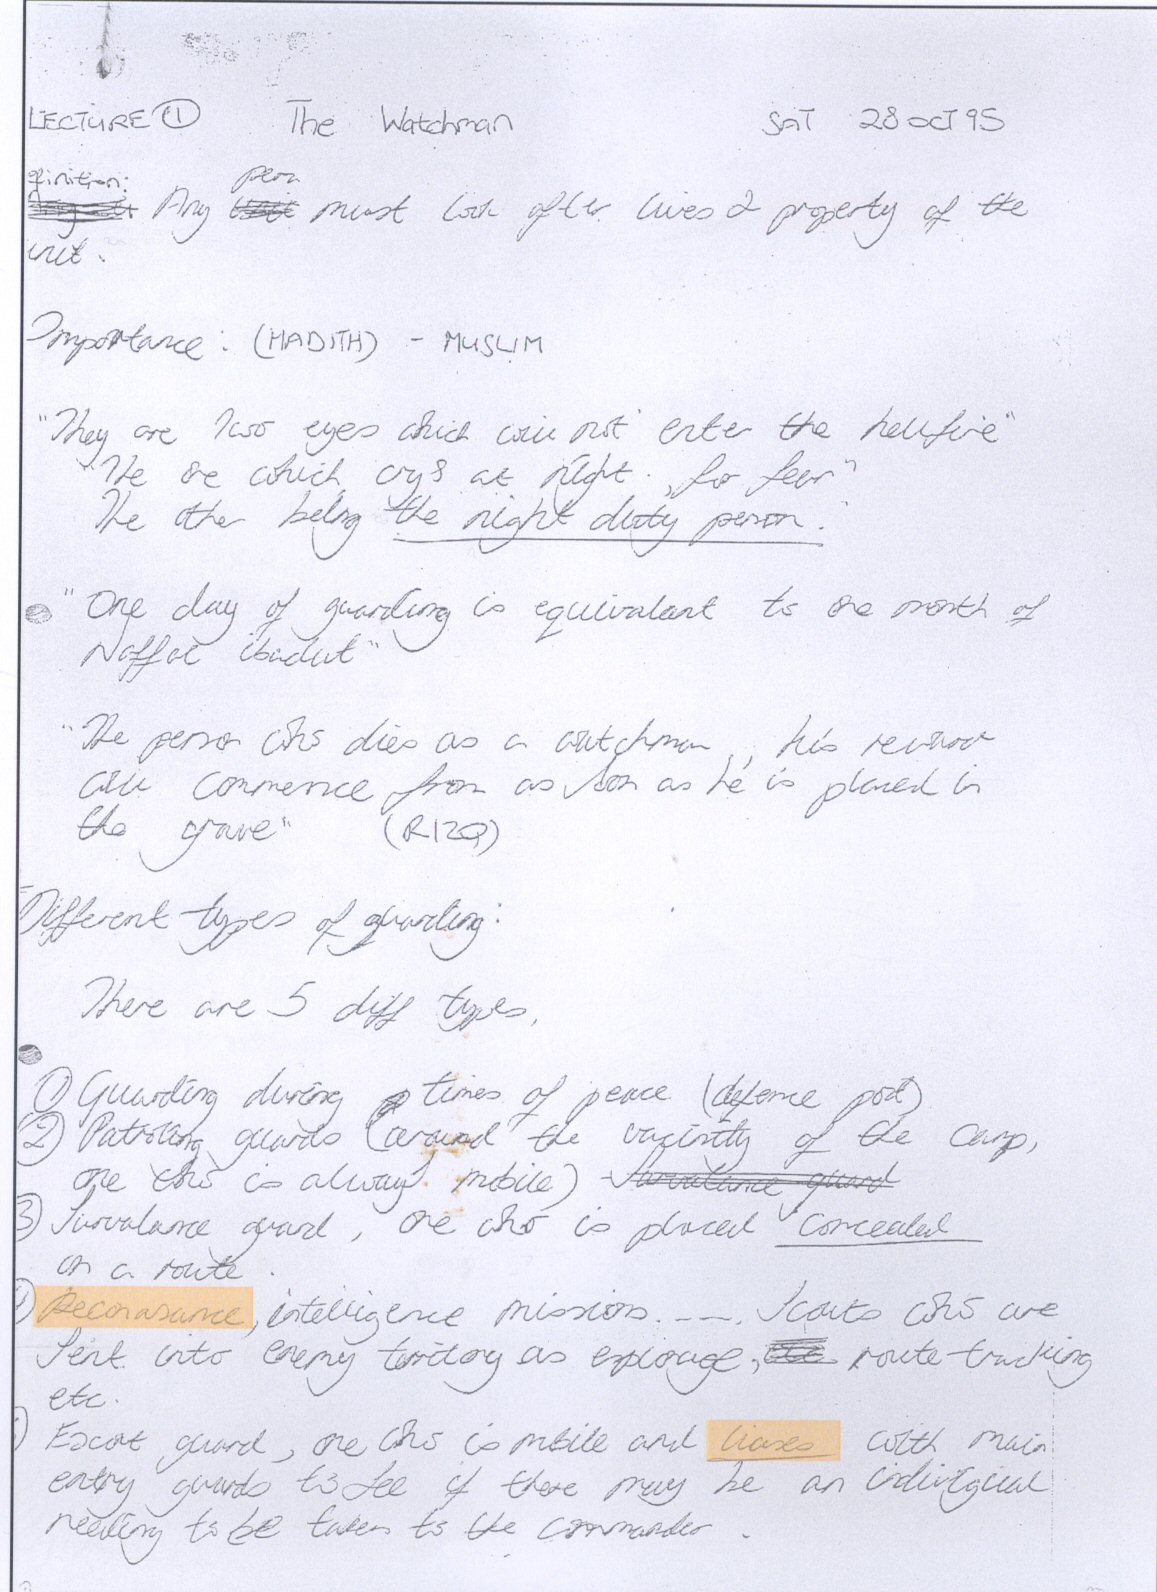 LECTURE ① The Watchman SAT 28 OCT 95
finition: person
Any must look after lives & property of the
unit.
Importance: (HADITH) - MUSLIM
"They are two eyes which will not enter the hellfire"
"The one which crys at night, for fear"
The other being the night duty person."
"One day of guarding is equivalent to one month of
Naffal ibadat"
"The person who dies as a watchman, his reward
will commence from as soon as he is placed in
the grave" (RIZQ)
Different types of guarding:
There are 5 diff types,
① Guarding during times of peace (defence post)
② Patroling guards (around the vacinity of the camp,
one who is always mobile) Survalance guard
③ Survalance guard, one who is placed concealed
on a route.
Reconasance, intelligence missions.---. Scouts who are
sent into enemy territory as espionage, route-tracking
etc.
Escort guard, one who is mobile and liases with main
entry guards to see if there may be an individual
needing to be taken to the commander.